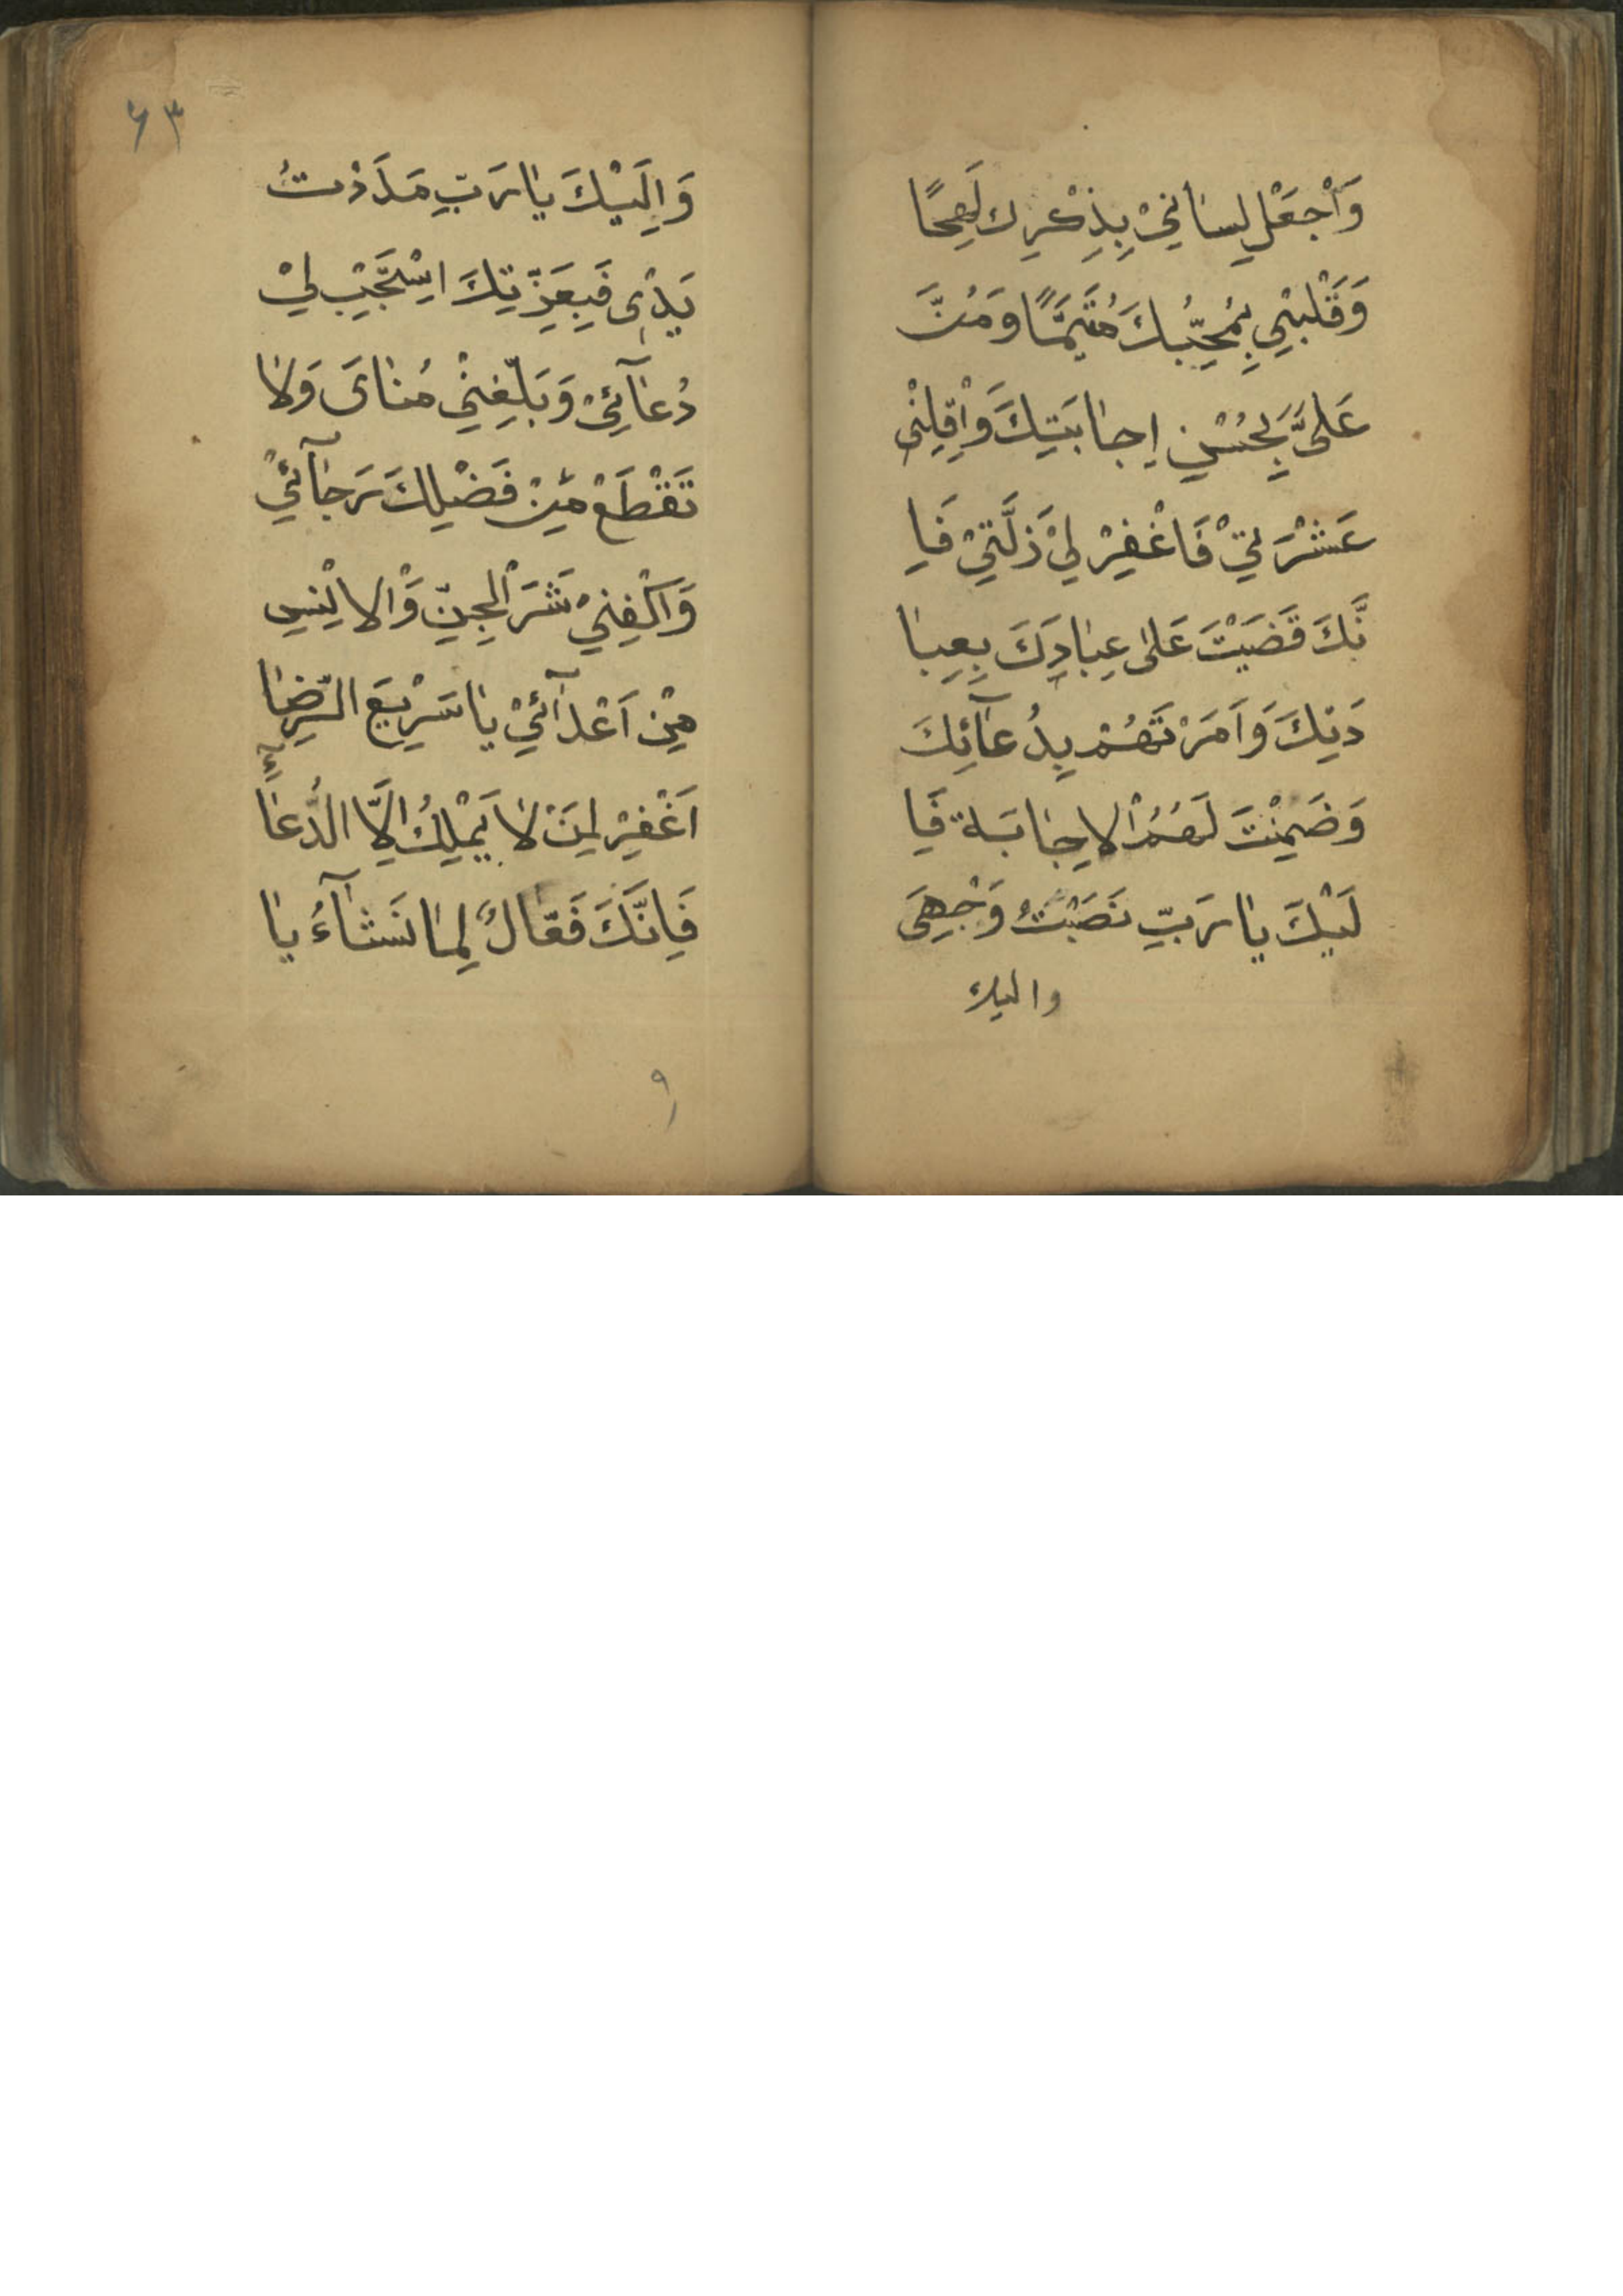 وَاجْعَلْ لِسَانِيْ بِذِكْرِكَ لَهِجًا
وَقَلْبِيْ بِحُبِّكَ مُتَيَّمًا وَمُنَّ
عَلَىَّ بِحُسْنِ اِجَابَتِكَ وَاَقِلْنِى
عَشْرَتِيْ فَاغْفِرْ لِيْ ذَلَّتِيْ فَاِ
نَّكَ قَضَيْتَ عَلىٰ عِبَادِكَ بِعِبَا
دَتِكَ وَاَمَرْتَهُمْ بِدُعَآئِكَ
وَضَمِنْتَ لَهُمُ الْاِجَابَةَ فَاِ
لَيْكَ يَا رَبِّ نَصَبْتُ وَجْهِىَ
واليك
٦٣
وَاِلَيْكَ يَا رَبِّ مَدَدْتُ
يَدِىْ فَبِعِزَّتِكَ اسْتَجِبْ لِيْ
دُعَآئِيْ وَبَلِّغْنِيْ مُنَاىَ وَلَا
تَقْطَعْ مِنْ فَضْلِكَ رَجَآئِيْ
وَاكْفِنِيْ شَرَّ الْجِنِّ وَالْاِنْسِ
مِنْ اَعْدَآئِيْ يَا سَرِيْعَ الرِّضَا
اِغْفِرْ لِمَنْ لَا يَمْلِكُ اِلَّا الدُّعَا
فَاِنَّكَ فَعَّالٌ لِمَا تَشَآءُ يَا
٩